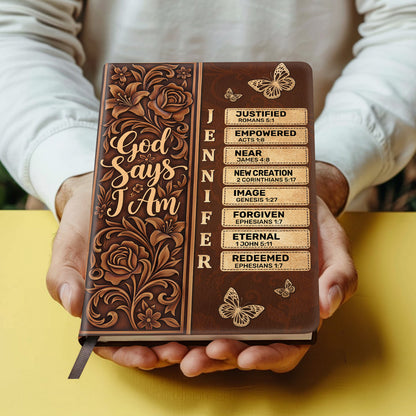 God
Says
I Am
JENNIFER
JUSTIFIED
ROMANS 5:1
EMPOWERED
ACTS 1:8
NEAR
JAMES 4:8
NEW CREATION
2 CORINTHIANS 5:17
IMAGE
GENESIS 1:27
FORGIVEN
EPHESIANS 1:7
ETERNAL
1 JOHN 5:11
REDEEMED
EPHESIANS 1:7